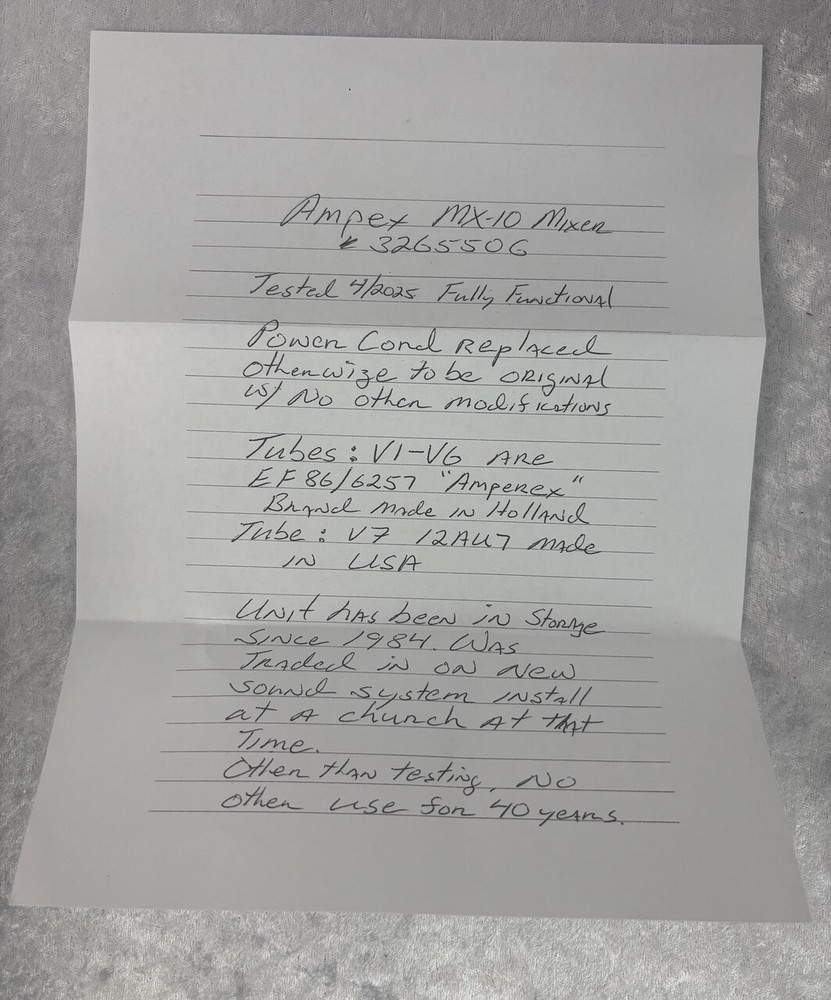 Ampex MX-10 Mixer
# 3265506
Tested 4/2025 Fully Functional
Power Cord Replaced
otherwize to be ORIGINAL
w/ No other modifications
Tubes: V1-V6 ARE
EF86/6257 "Amperex"
Brand made in Holland
Tube: V7 12AU7 made
IN USA
Unit has been in Storage
Since 1984. Was
Traded in on new
sound system install
at a church at that
Time.
Other than testing, No
other use for 40 years.